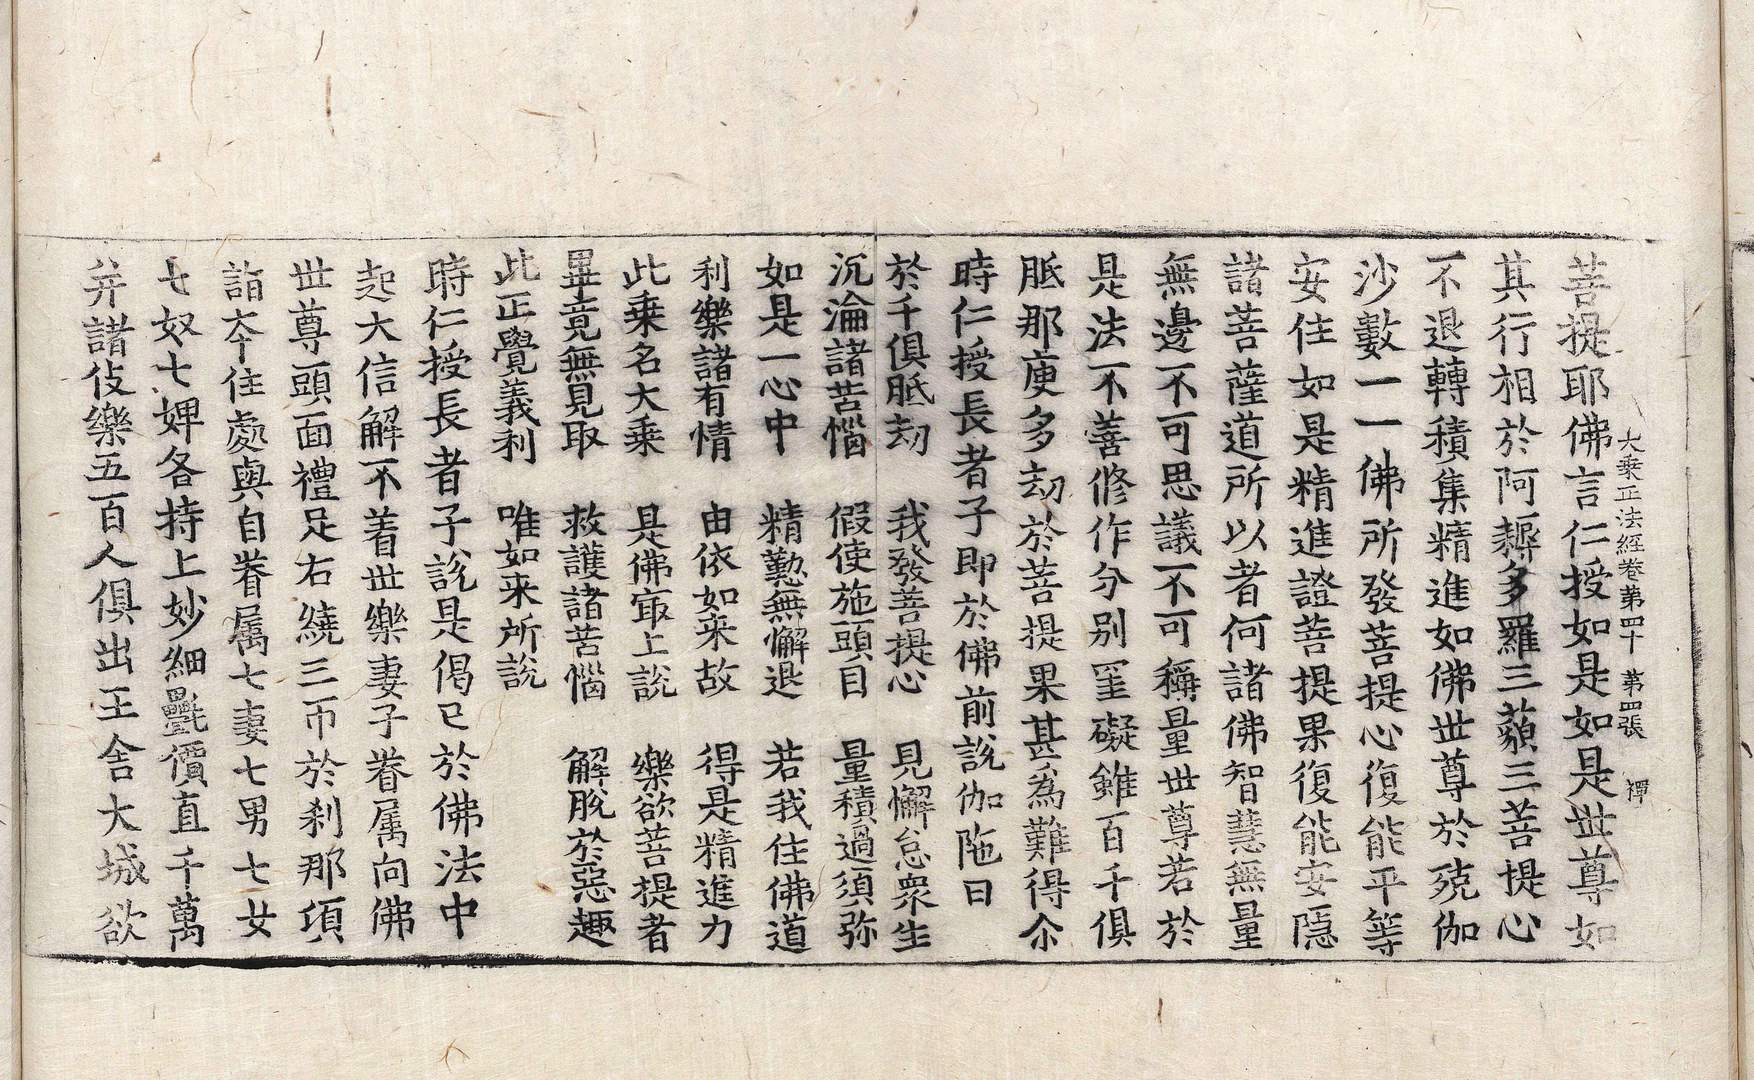 大乗正法經卷第四十　第四張　禪
菩提耶佛言仁授如是如是世尊如
其行相於阿耨多羅三藐三菩提心
不退轉積集精進如佛世尊於殑伽
沙數一一佛所發菩提心復能平等
安住如是精進證菩提果復能安隱
諸菩薩道所以者何諸佛智慧無量
無邊不可思議不可稱量世尊若於
是法不善修作分别罣礙雖百千俱
胝那庾多劫於菩提果甚為難得尒
時仁授長者子即於佛前說伽陁曰
於千俱胝劫　我發菩提心　見懈怠衆生
沉淪諸苦惱　假使施頭目　量積過須弥
如是一心中　精勤無懈退　若我住佛道
利樂諸有情　由依如来故　得是精進力
此乗名大乗　是佛㝡上說　樂欲菩提者
畢竟無見取　救護諸苦惱　解脫於惡趣
此正覺義利　唯如来所說
時仁授長者子說是偈已於佛法中
起大信解不着世樂妻子眷属向佛
世尊頭面禮足右繞三帀於刹那項
詣夲住處與自眷属七妻七男七女
七奴七婢各持上妙細㲲價直千萬
并諸伎樂五百人俱出王舍大城欲